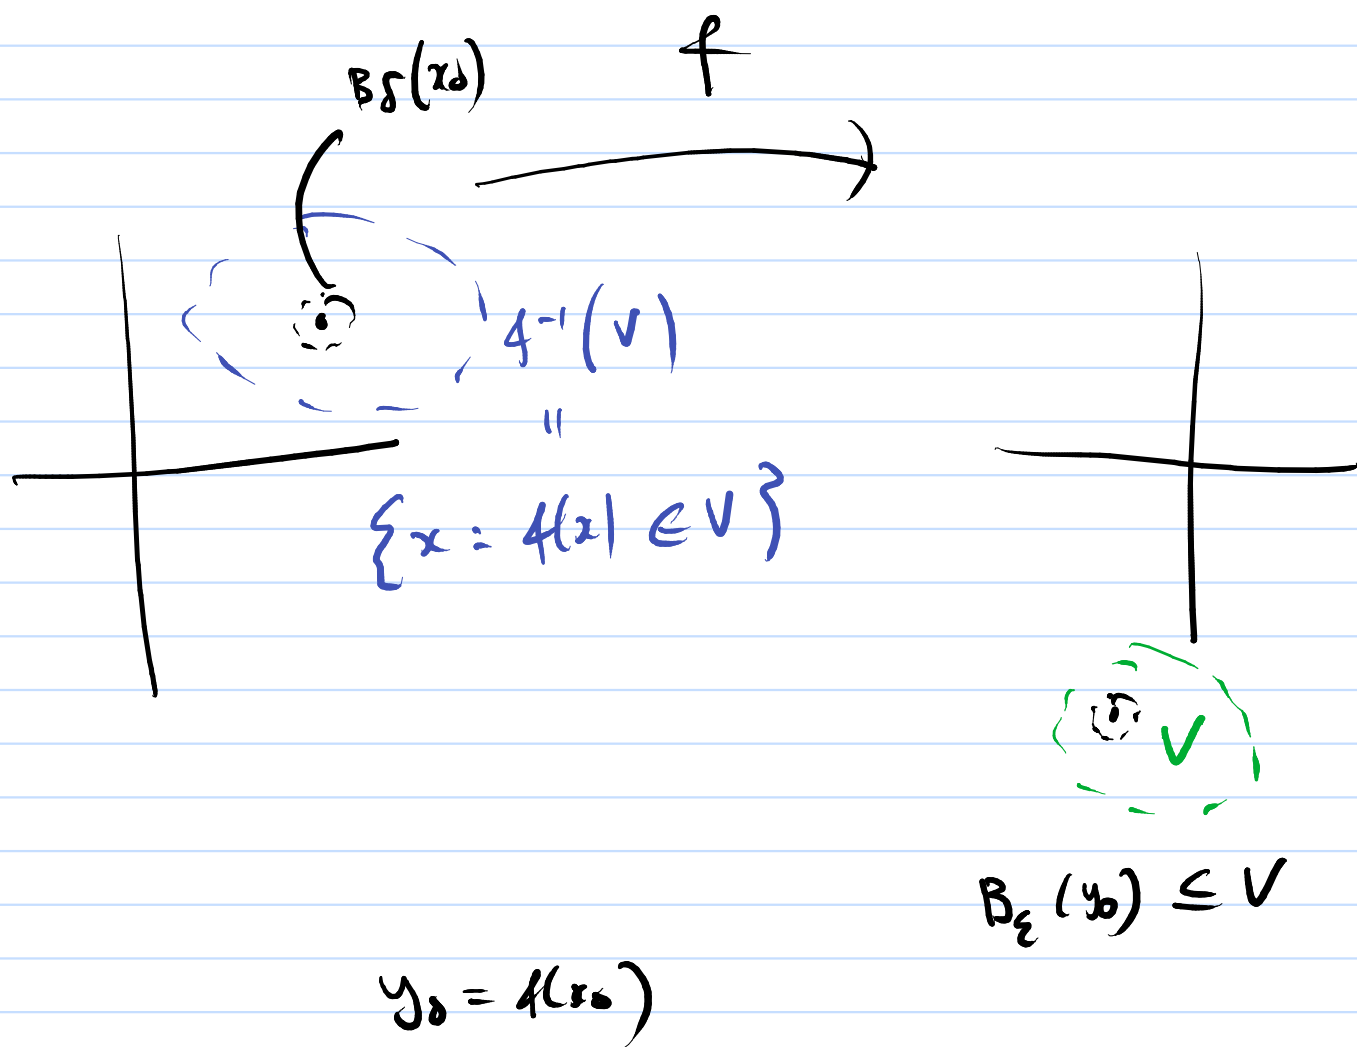 f
Bδ(x₀)
f⁻¹(V)
=
{x : f(x) ∈ V}
V
B_ε(y₀) ⊆ V
y₀ = f(x₀)